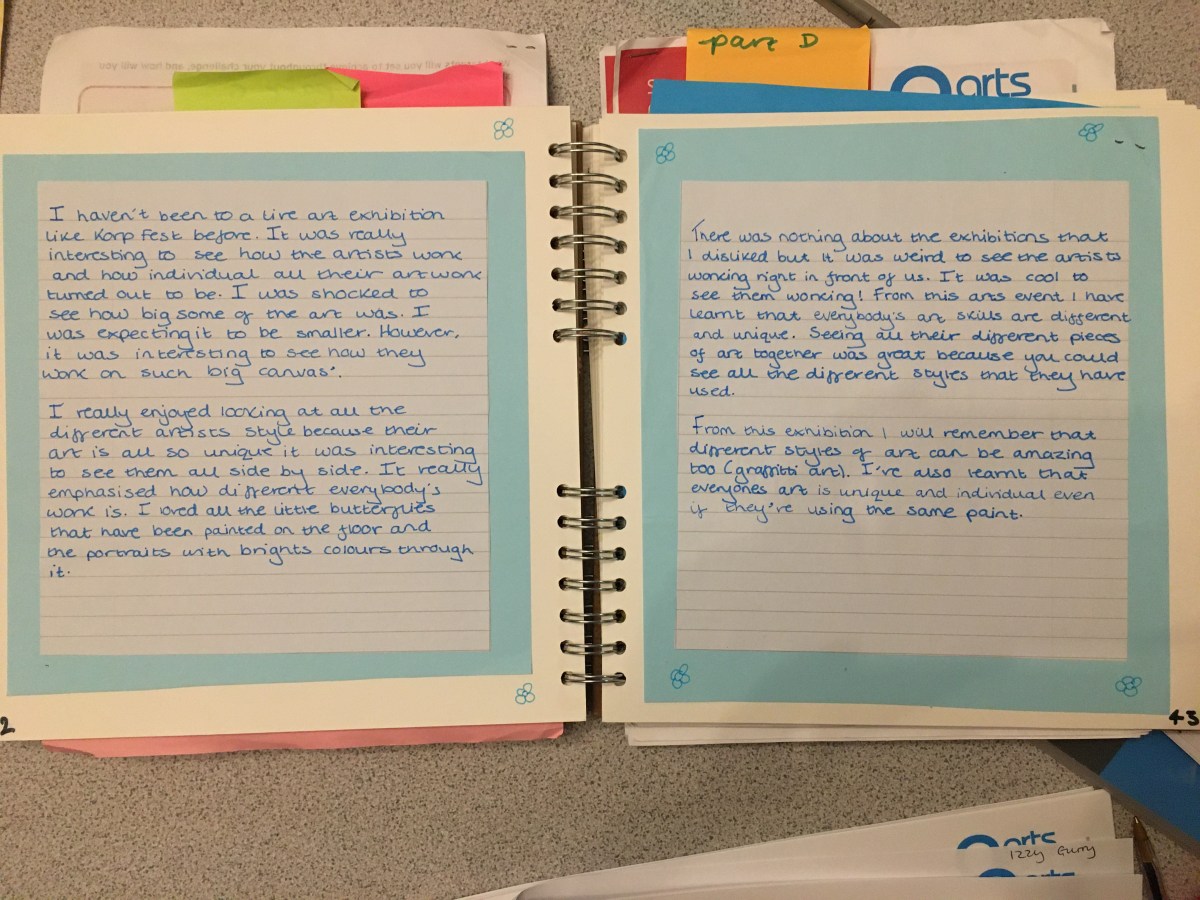 part D
arts
I haven't been to a live art exhibition
like Korp Fest before. It was really
interesting to see how the artists work
and how individual all their artwork
turned out to be. I was shocked to
see how big some of the art was. I
was expecting it to be smaller. However,
it was interesting to see how they
work on such big canvas'.
I really enjoyed looking at all the
different artists style because their
art is all so unique it was interesting
to see them all side by side. It really
emphasised how different everybody's
work is. I loved all the little butterflies
that have been painted on the floor and
the portraits with brights colours through
it.
2
There was nothing about the exhibitions that
I disliked but it was weird to see the artists
working right in front of us. It was cool to
see them working! From this arts event I have
learnt that everybody's art skills are different
and unique. Seeing all their different pieces
of art together was great because you could
see all the different styles that they have
used.
From this exhibition I will remember that
different styles of art can be amazing
too (graffitti art). I've also learnt that
everyones art is unique and individual even
if they're using the same paint.
43
arts
Izzy
arts